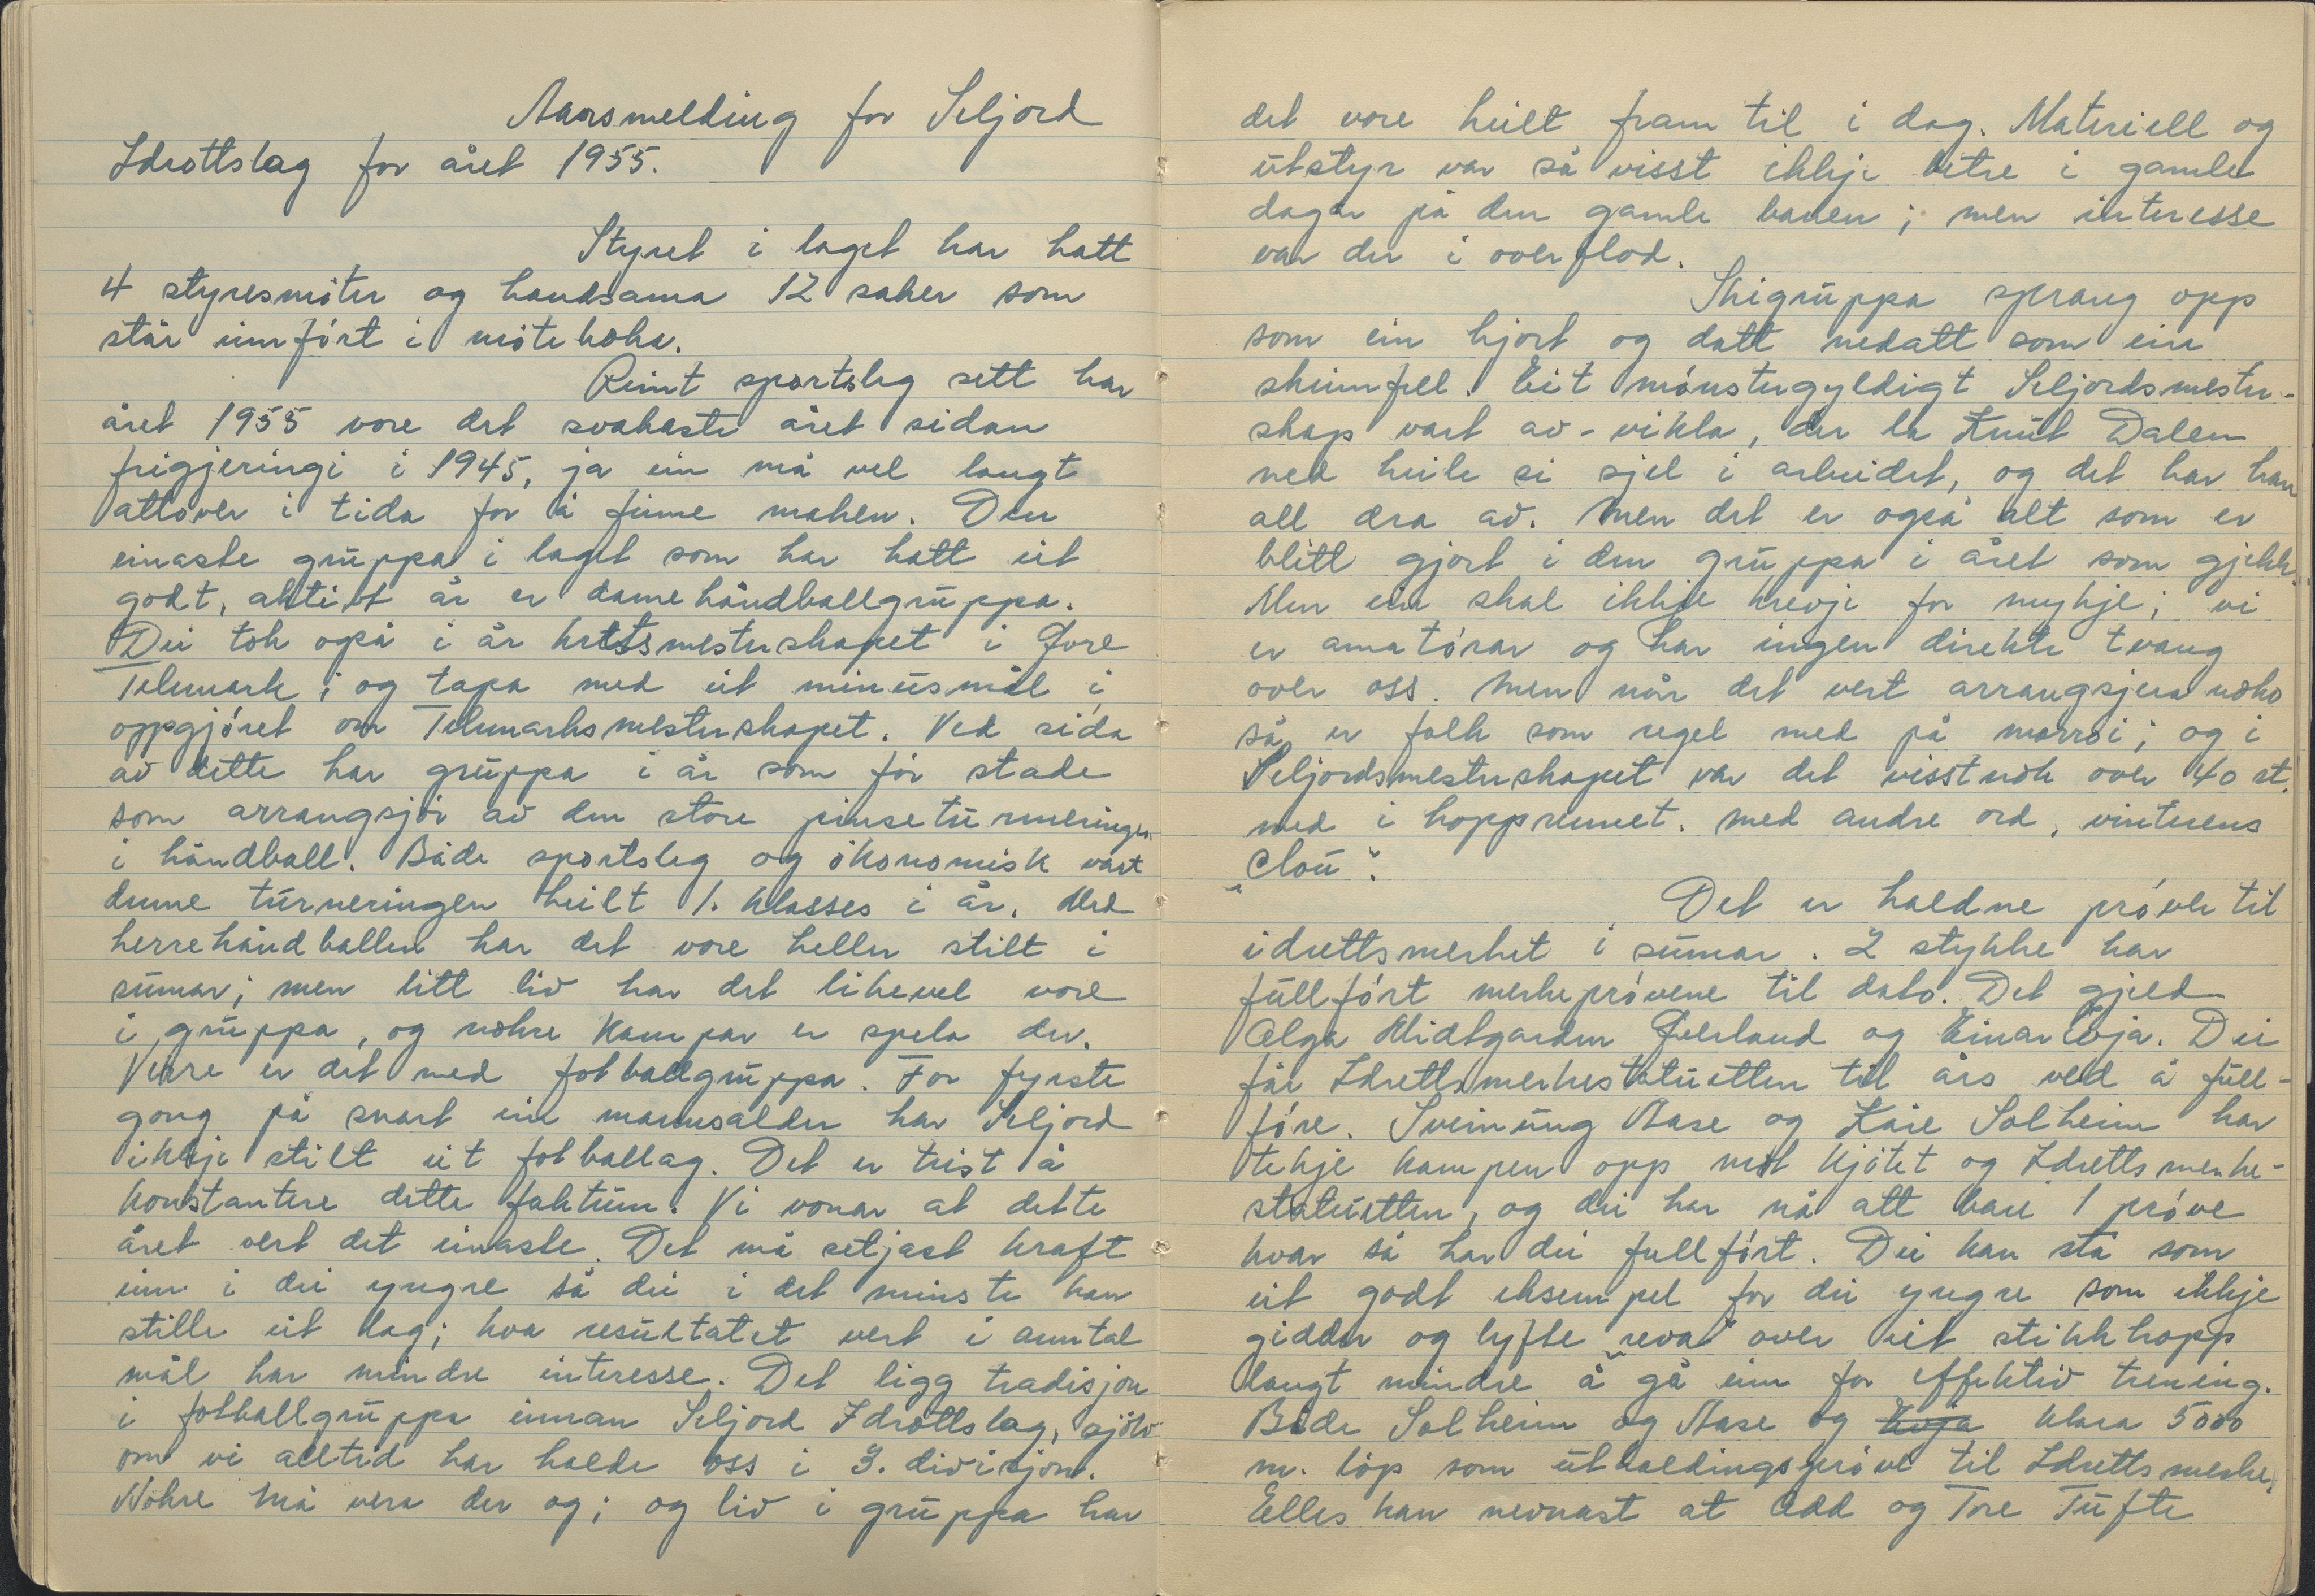 Aarsmelding for Seljord
Idrottslag for året 1955.
Styret i laget har hatt
4 styresmöter og handsama 12 saker som
står innfört i möteboka.
Reint sportsleg sett har
året 1955 vore det svakaste året sidan
frigjeringi i 1945, ja ein må vel langt
attover i tida for å finne maken. Den
einaste gruppa i laget som har hatt eit
godt, aktivt år er damehåndballgruppa.
Dei tok også i år kretsmesterskapet i Øvre
Telemark; og tapa med eit minusmål i
oppgjöret om Telemarksmesterskapet. Ved sida
av dette har gruppa i år som för stade
som arrangsjör av den store pinseturneringen
i håndball. Både sportsleg og ökonomisk vart
denne turneringen heilt 1. klasses i år. Med
herrehåndballen har det vore heller stilt i
sumar; men litt liv har det likevel vore
i gruppa, og nokre kampar er spela der.
Verre er det med fotballgruppa. For fyrste
gong på snart ein mannsalder har Seljord
ikkje stilt eit fotballag. Det er trist å
konstantere dette faktum. Vi vonar at dette
året vert det einaste. Det må setjast kraft
inn i dei yngre så dei i det minste kan
stille eit lag; kva resultatet vert i anntal
mål har mindre interesse. Det ligg tradisjon
i fotballgruppa innan Seljord Idrottslag, sjölv
om vi alltid har halde oss i 3. divisjon.
Nokre må vera der og; og liv i gruppa har
det vore heilt fram til i dag. Materiell og
utstyr var så visst ikkje betre i gamle
dagar på den gamle banen; men interesse
var der i overflod.
Skigruppa sprang opp
som ein hjort og datt nedatt som ein
skinnfell. Eit mönstergyldigt Seljordsmester-
skap vart av-vikla, der la Knut Dalen
ned heile si sjel i arbeidet, og det har han
all æra av. Men det er også alt som er
blitt gjort i den gruppa i året som gjekk.
Men ein skal ikkje krevje for mykje; vi
er amatörar og har ingen direkte tvang
over oss. Men når det vert arrangsjera noko
så er folk som regel med på morroi; og i
Seljordsmesterskapet var det visstnok over 40 st.
med i hopprennet. Med andre ord, vinterens
"Clou".
Det er haldne pröver til
idrettsmerket i sumar. 2 stykke har
fullfört merkepróvene til dato. Det gjeld
Olga Midtgarden Øverland og Einar Evja. Dei
får Idrettsmerkestatuetten til års ved å full-
före. Sveinung Aase og Kåre Solheim har
tekje kampen opp mot kjötet og Idrettsmerke-
statuetten, og dei har nå att bare 1 pröve
kvar så har dei fullfört. Dei kan stå som
eit godt eksempel for dei yngre som ikkje
giddar og lyfte "reva" over eit stikkhopp
langt mindre å gå inn for effektiv trening.
Både Solheim og Aase og ~~Evja~~ klara 5000
m. löp som utholdingspröve til Idrettsmerke.
Elles kan nevnast at Odd og Tore Tufte